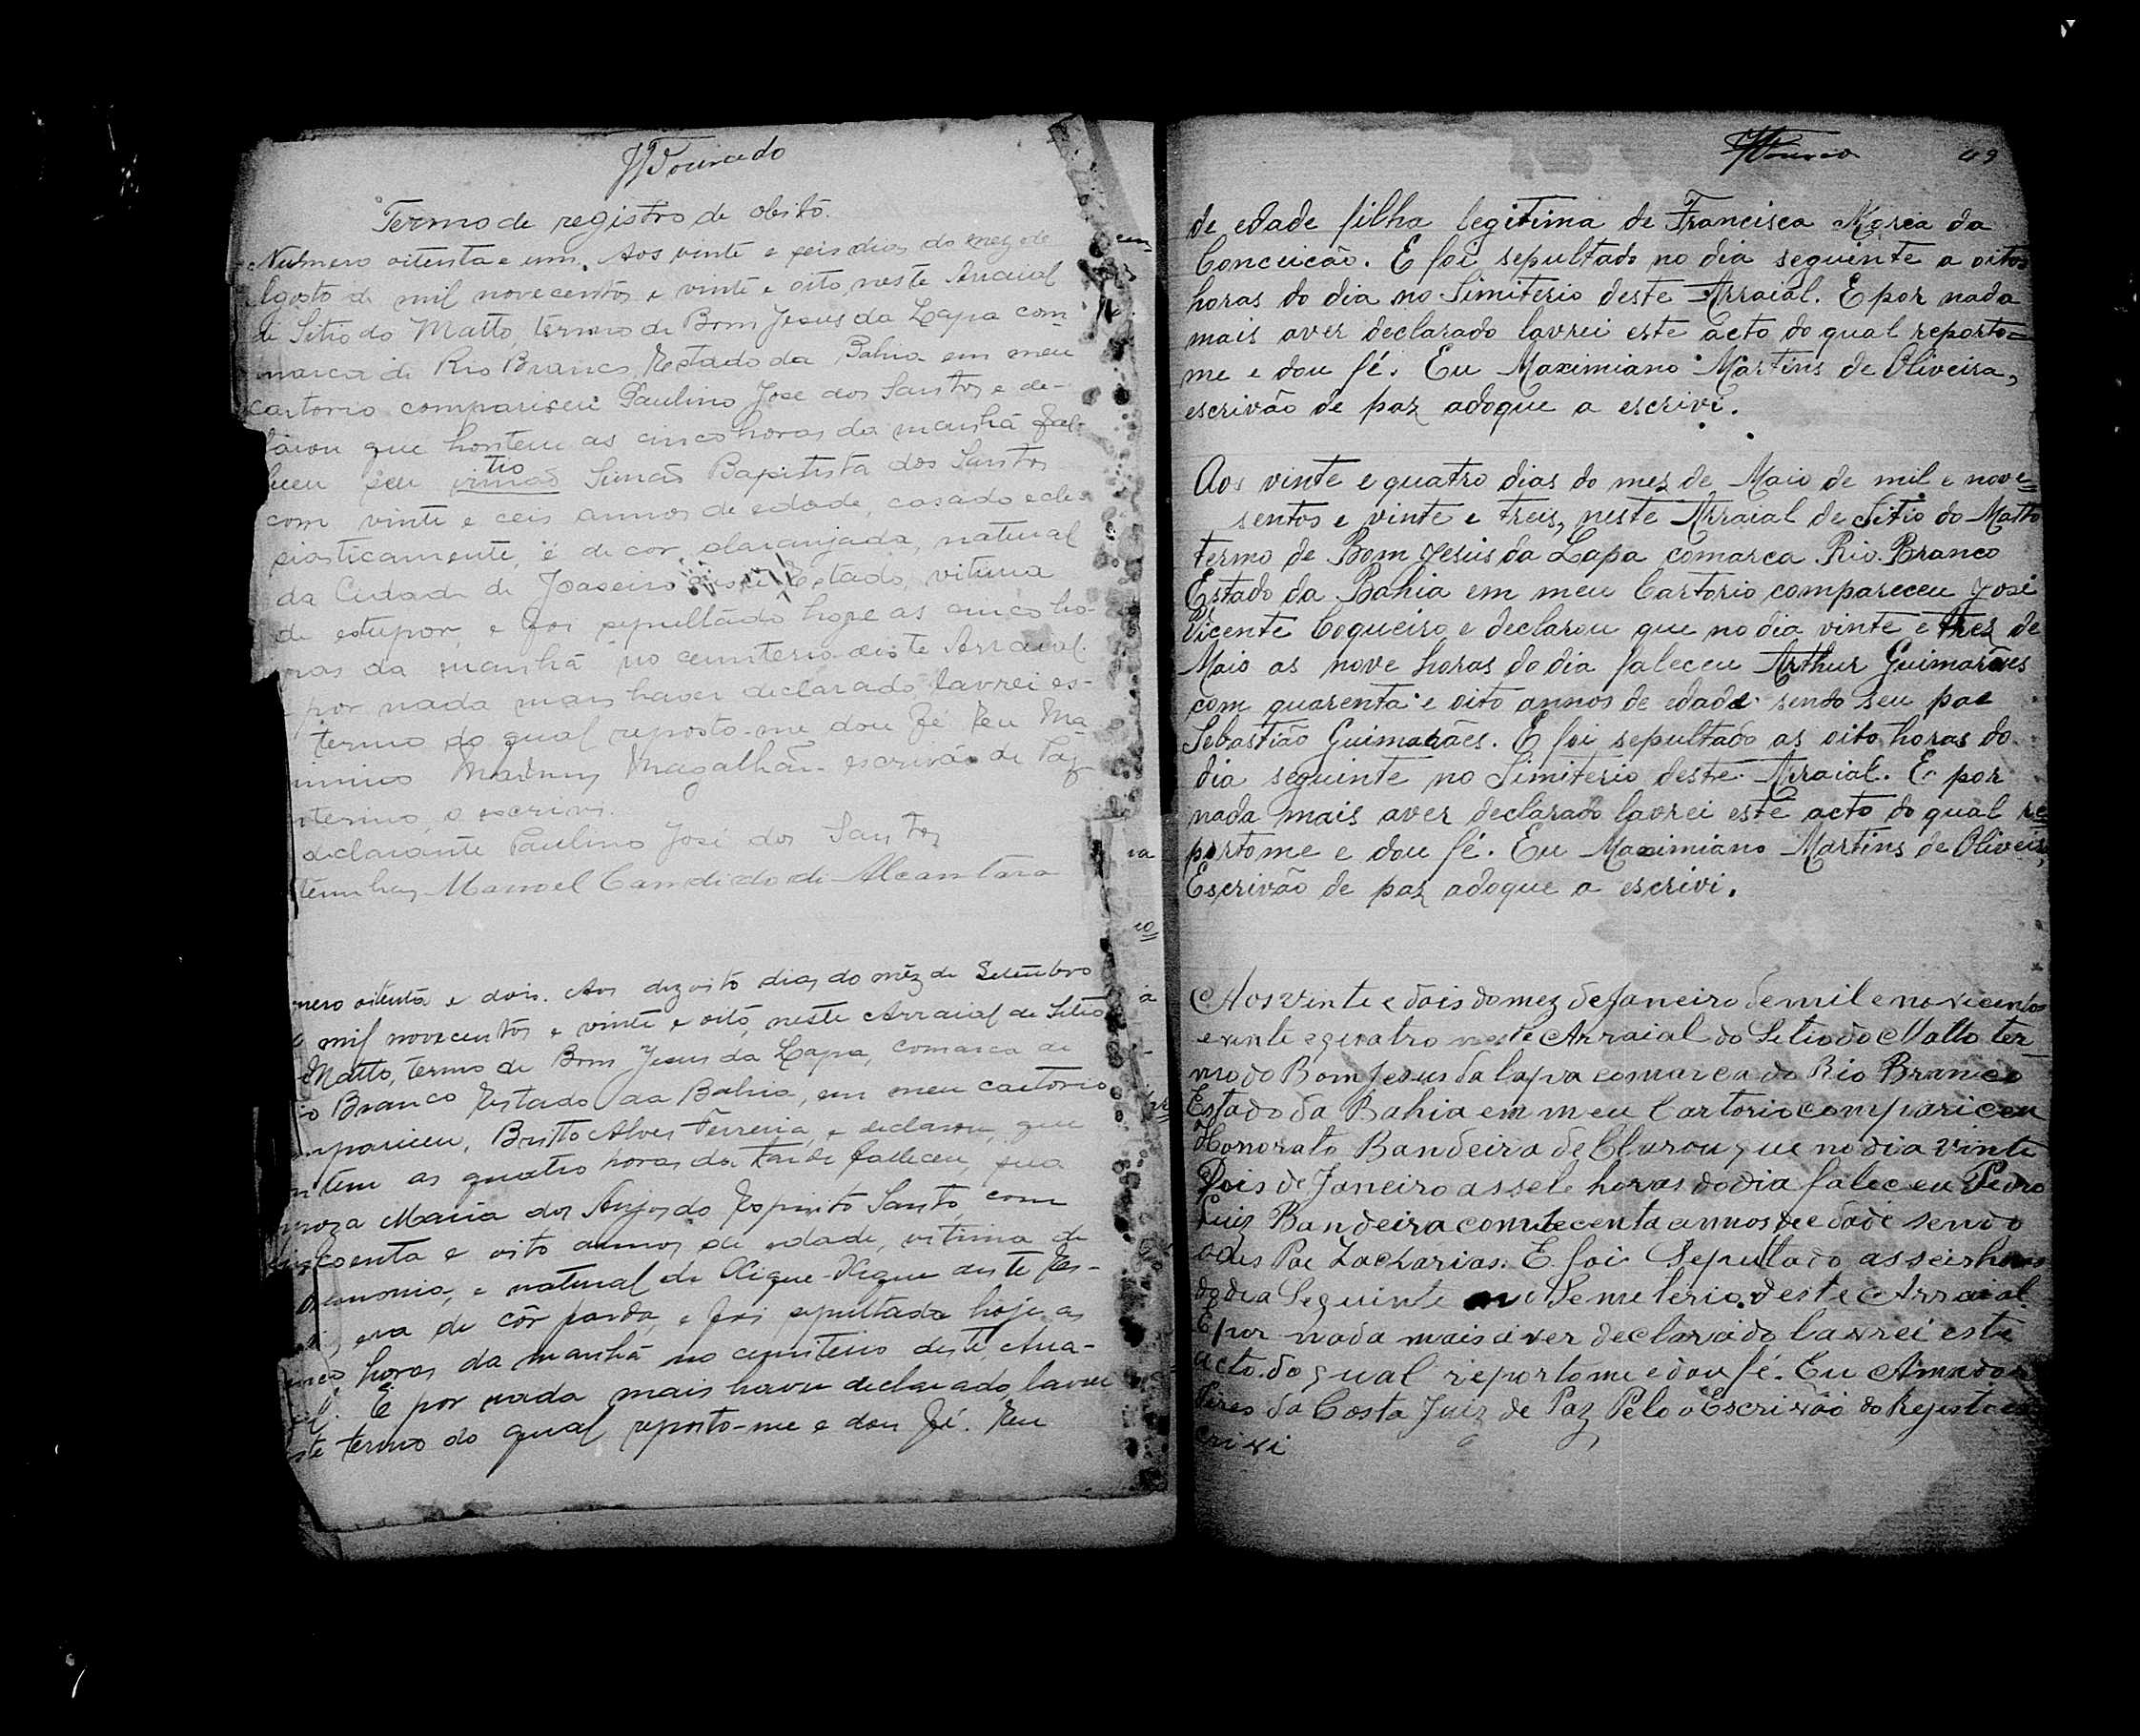 Dourado
Termo de registro de obito.
Numero oitenta e um. Aos vinte e seis dias do mez de
Agosto de mil novecentos e vinte e oito, neste Arraial
de Sitio do Matto, termo de Bom Jesus da Lapa com-
marca de Rio Branco, Estado da Bahia em meu
cartorio compariseu Paulino José dos Santos e de-
clarou que hontem as cinco horas da manhã fal-
leceu seu irmão tio Simão Baptista dos Santos
com vinte e ceis annos de edade, casado ecle-
siasticamente, é de cor alaranjada, natural
da Cidade de Joaseiro Estado, vitima
de estupor, e foi sepultado hoje as cinco ho-
ras da manhã no cemiterio deste Arraial.
por nada mais haver declarado, lavrei es-
termo do qual reposto-me dou fé Eu Ma
ximino Martins Magalhães escrivão de Paz
interino, o escrivi.
declarante Paulino José dos Santos
temunhas Manoel Candido de Alcantara
mero oitenta e dois. Aos dezoito dias do mêz de Setembro
mil novecentos e vinte e oito, neste Arraial de Sitio
Matto, termo de Bom Jesus da Lapa, comarca de
io Branco Estado da Bahia, em meu cartorio
mpariceu, Britto Alves Ferreira, e declarou, que
ntem as quatro horas da tarde falleceu, sua
Maria dos Anjos do Espirito Santo, com
incoenta e oito annos de edade, vitima de
pneumonia, e natural de Xique-Xique deste Es-
era de côr parda, e foi sepultada hoje as
horas da manhã no cemiterio deste Arra-
E por nada mais haver declarado, lavrei
ste termo do qual reposto-me e dou fé. Eu
49
de edade filha legitima de Francisca Maria da
Conceicão. E foi sepultado no dia seguinte a oitos
horas do dia no Simiterio deste Arraial. E por nada
mais aver declarado lavrei este acto do qual reporto=
me e dou fé. Eu Maximiano Martins de Oliveira,
escrivão de paz adoque a escrivi.
Aos vinte e quatro dias do mez de Maio de mil e nove=
sentos e vinte e treis, neste Arraial de Sitio do Matto
termo de Bom Jesus da Lapa comarca Rio Branco
Estado da Bahia em meu Cartorio compareceu José
Vicente Coqueiro e declarou que no dia vinte e tres de
Maio as nove horas do dia faleceu Arthur Guimarães
com quarenta e oito annos de edade sendo seu pae
Sebastião Guimarães. E foi sepultado as oito horas do
dia seguinte no Simiterio deste Arraial. E por
nada mais aver declarado lavrei este acto do qual re=
portome e dou fé. Eu Maximiano Martins de Oliveira,
Escrivão de paz adoque a escrivi.
Aos vinte e dois do mez de Janeiro de mil e novicentos
e vinte e quatro neste Arraial do Sitio do Matto ter-
mo do Bom Jesus da lapa comarca do Rio Branco
Estado da Bahia em meu Cartorio compariceu
Honorato Bandeira de Clarou que no dia vinte
Dois de Janeiro as sete horas do dia faleceu Pedro
Luiz Bandeira com cecenta annos de edade sendo
Pae Zacharias. E foi Sepultado as seis horas
do dia Seguinte no Semeterio deste Arraial
E por nada mais aver declarado lavrei este
acto do qual reportome e dou fé. Eu Amador
Pires da Costa Juiz de Paz Pelo o Escrivão do Rejisto es
crivi